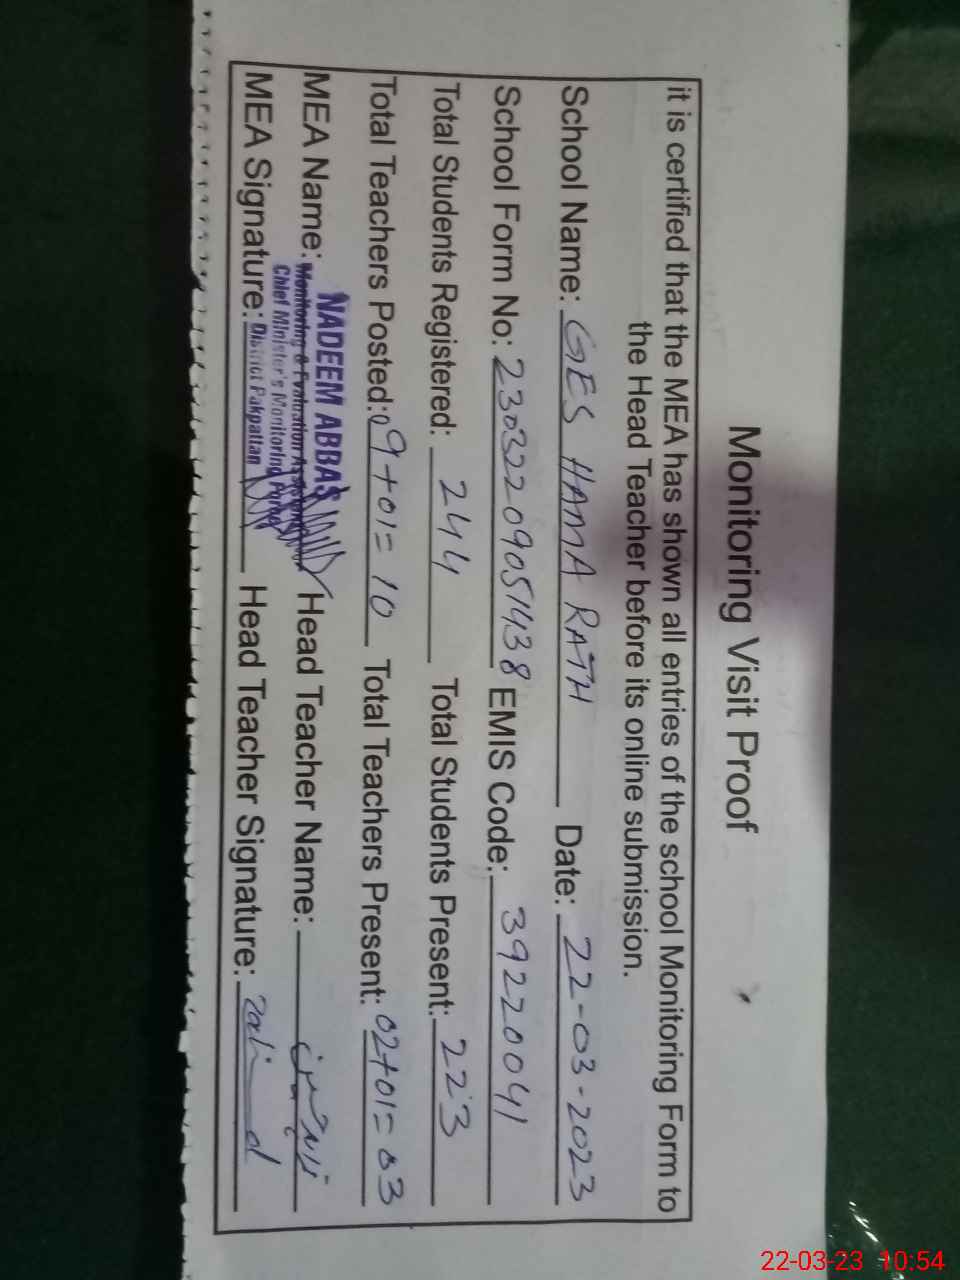 Monitoring Visit Proof
it is certified that the MEA has shown all entries of the school Monitoring Form to
the Head Teacher before its online submission.
School Name: GES HAMA RATH Date: 22-03-2023
School Form No: 23032209051438 EMIS Code: 39220041
Total Students Registered: 244 Total Students Present: 223
Total Teachers Posted: 09+01=10 Total Teachers Present: 02+01=03
MEA Name: NADEEM ABBAS Head Teacher Name:
Monitoring & Evaluation Assistant
Chief Minister's Monitoring Force
MEA Signature: District Pakpattan Head Teacher Signature:
22-03-23 10:54